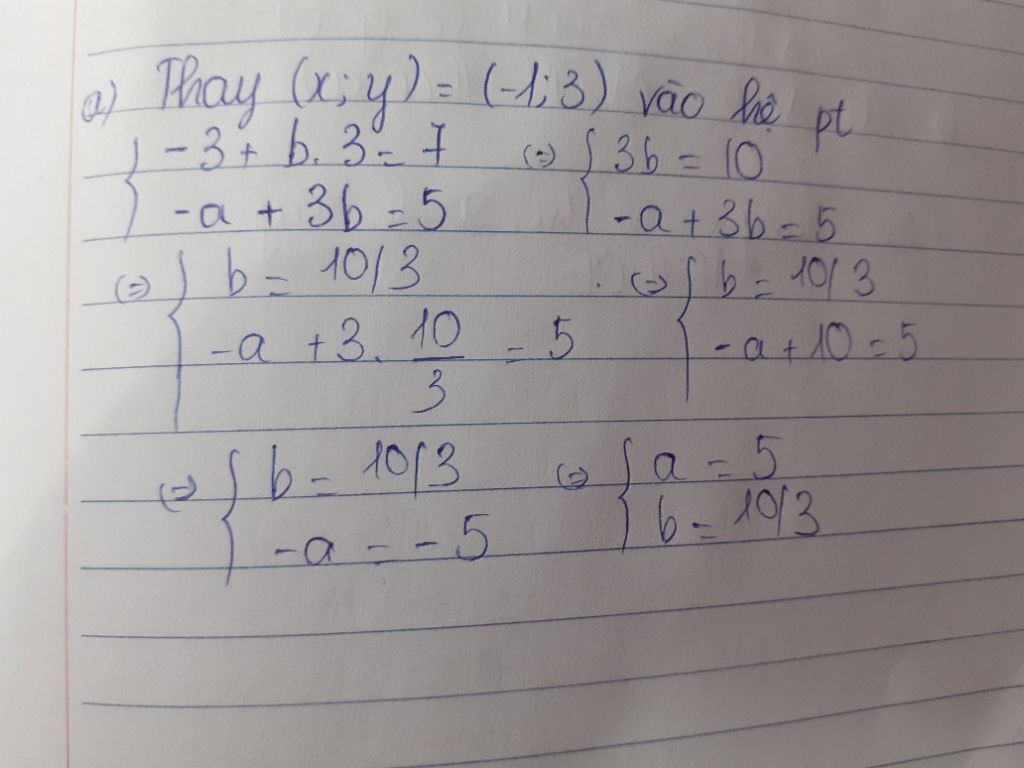 a) Thay (x; y) = (-1; 3) vào hệ pt
{ -3 + b. 3 = 7 (=) { 3b = 10
-a + 3b = 5 -a + 3b = 5
(=) { b = 10/3 . (=) { b = 10/3
-a + 3. 10/3 = 5 -a + 10 = 5
(=) { b = 10/3 (=) { a = 5
-a = - 5 b = 10/3